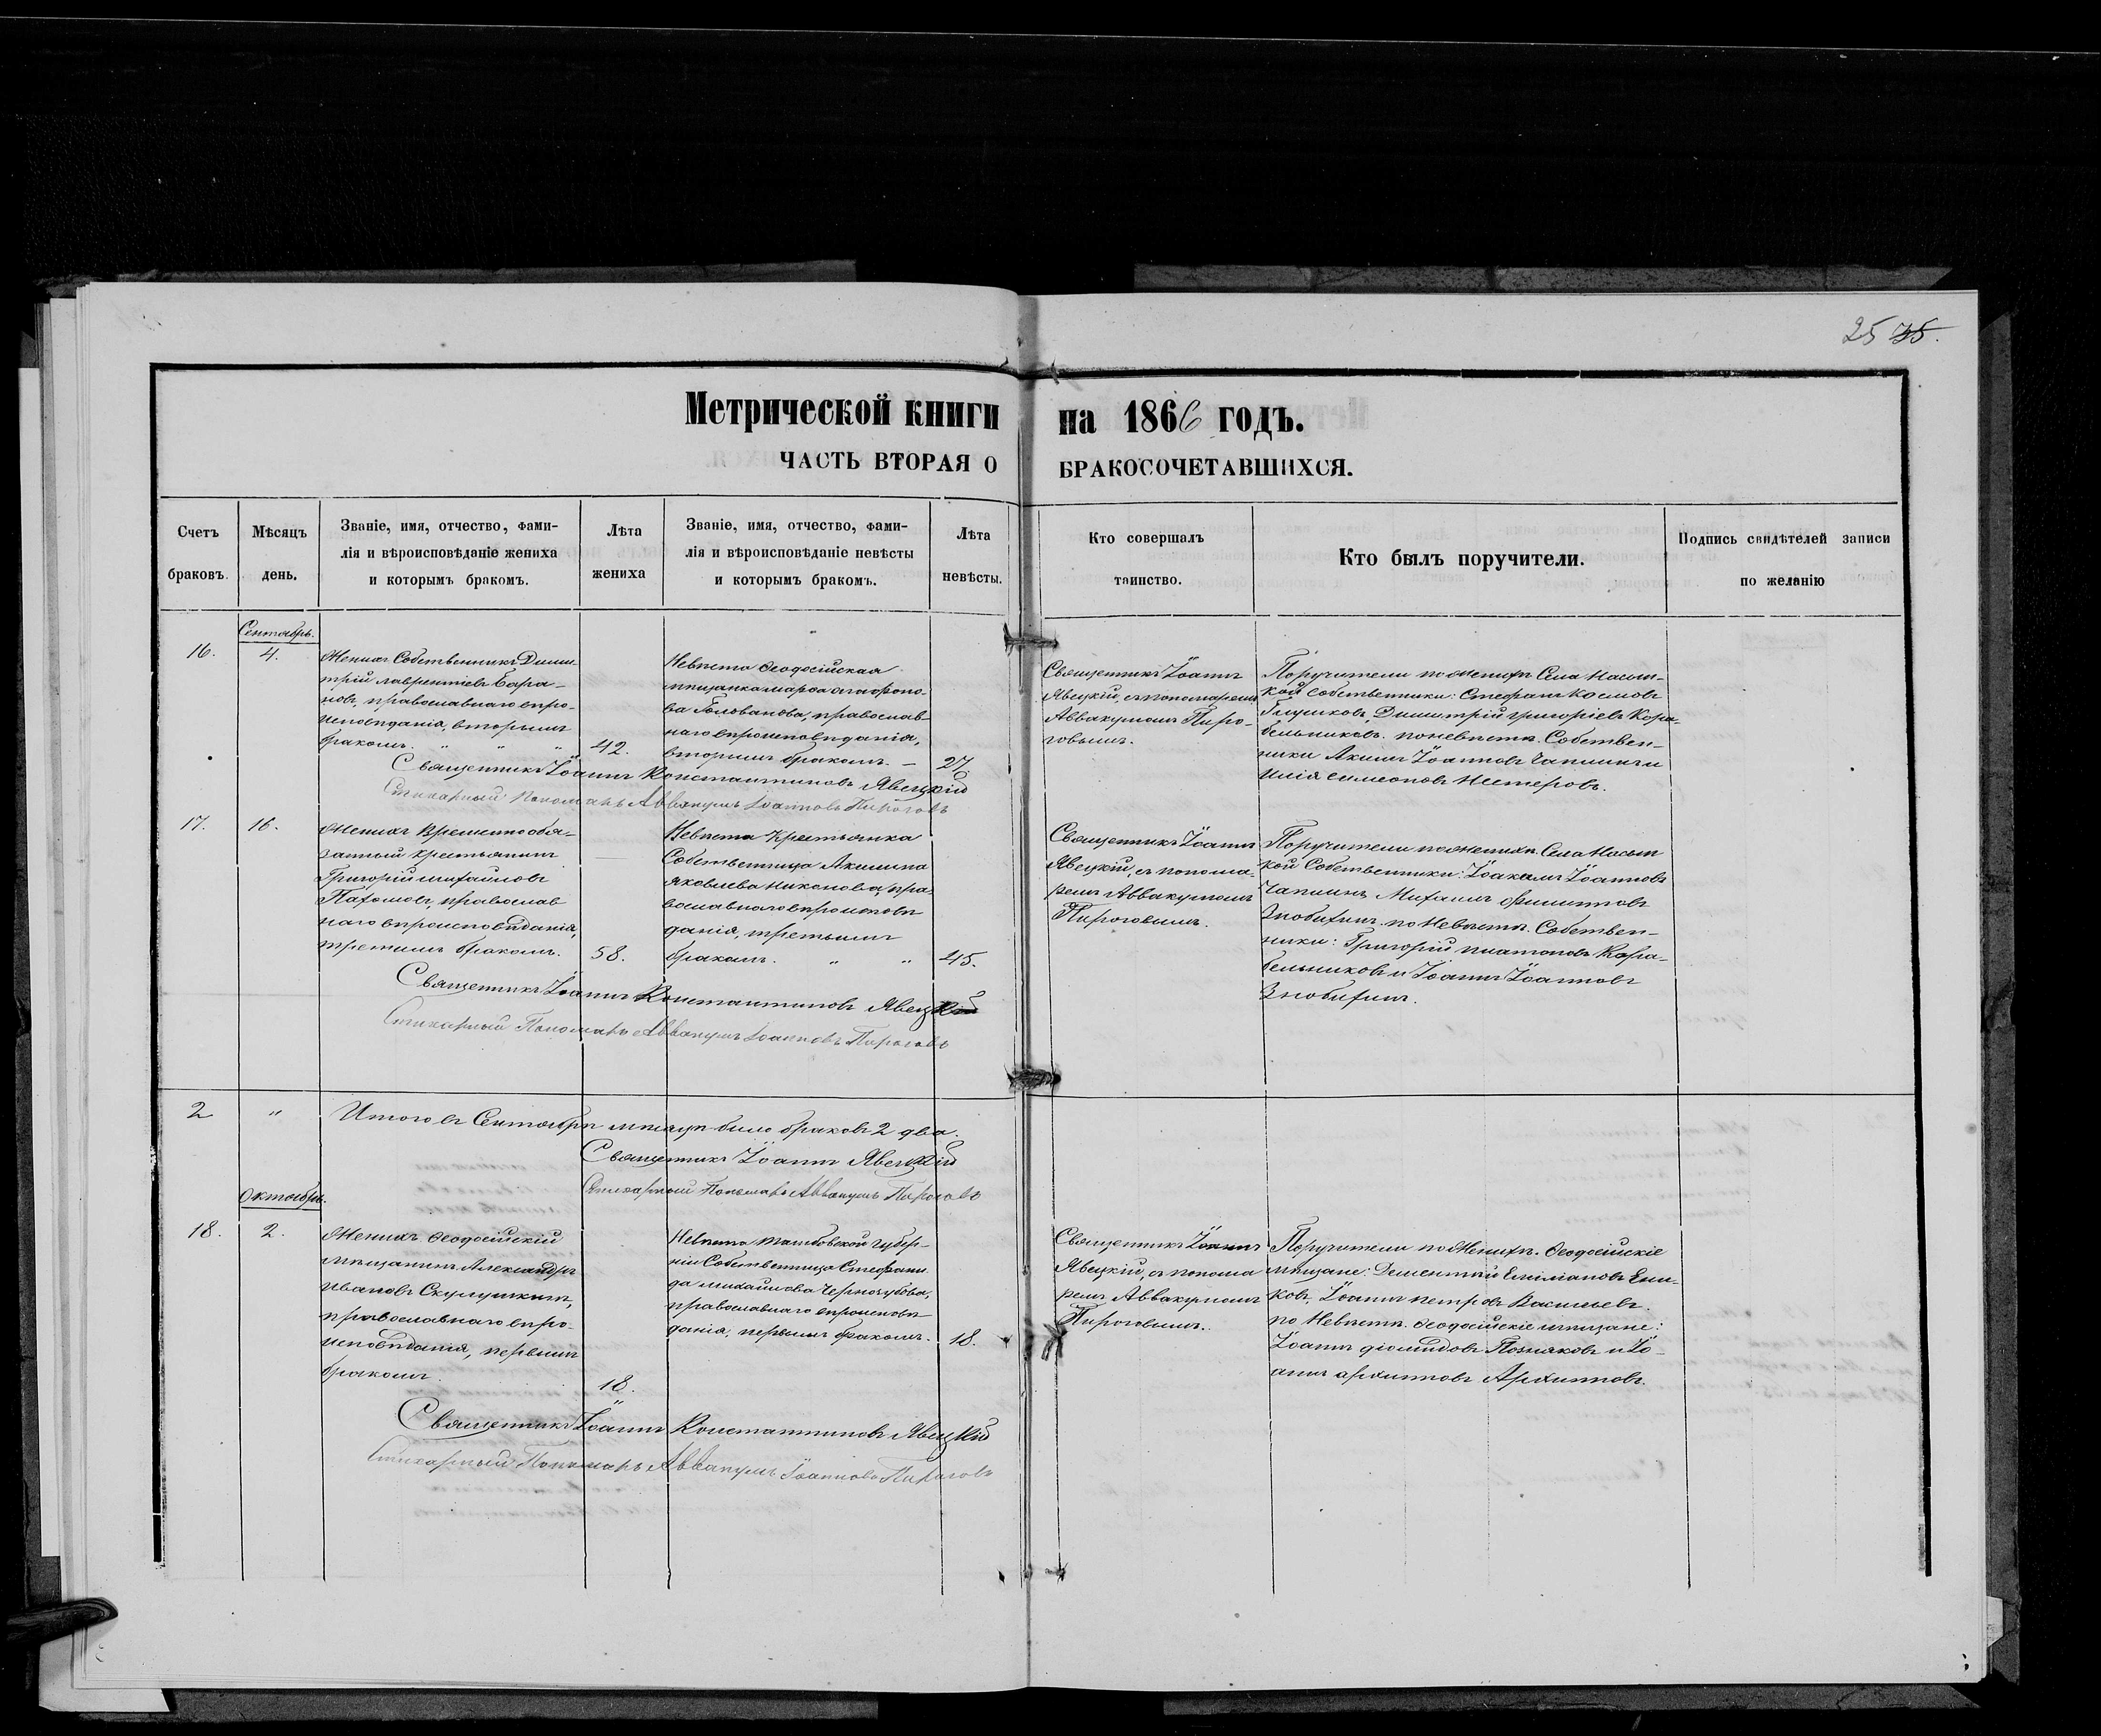 25 35.
Метрической книги на 1866 годъ.
ЧАСТЬ ВТОРАЯ О БРАКОСОЧЕТАВШИХСЯ.
Счетъ браковъ.
Мѣсяцъ день.
Званіе, имя, отчество, фами-
лія и вѣроисповѣданіе жениха
и которымъ бракомъ.
Лѣта
жениха
Званіе, имя, отчество, фами-
лія и вѣроисповѣданіе невѣсты
и которымъ бракомъ.
Лѣта
невѣсты.
Кто совершалъ
таинство.
Кто былъ поручители.
Подпись свидѣтелей записи
по желанію
Сентябрь.
16.
4.
Женихъ Собственникъ Дими-
трій Лаврентіевъ Бара-
новъ, православнаго вѣро-
исповѣданія, вторымъ
бракомъ. " " "
42.
Невѣста Ѳеодосійская
мѣщанка Марѳа Агаѳоно-
ва Голованова, православ-
наго вѣроисповѣданія,
вторымъ бракомъ. —
27
Священникъ Іоаннъ
Явецкій, съ пономаремъ
Аввакумомъ Пиро-
говымъ.
Поручители по женихѣ Села Насып-
кой собственники: Стефанъ Космовъ
Глушковъ, Димитрій Григоріевъ Кора-
бельниковъ. по невѣстѣ. Собствен-
ники Акимъ Іоанновъ Чаплинъ и
Илія Симеоновъ Нестеровъ.
Священникъ Іоаннъ Константиновъ Явецкій
Стихарный Пономарь Аввакумъ Іоанновъ Пироговъ
17.
16.
Женихъ Временно обя-
занный крестьянинъ
Григорій Михайловъ
Пахомовъ, православ
наго вѣроисповѣданія,
третьимъ бракомъ.
58.
Невѣста Крестьянка
Собственница Акилина
Яковлева Никонова, пра-
вославнаго вѣроисповѣ
данія, третьимъ
бракомъ. " "
45.
Священникъ Іоаннъ
Явецкій, съ понома-
ремъ Аввакумомъ
Пироговымъ.
Поручители по женихѣ. Села Насып
кой Собственники: Іоакимъ Іоанновъ
Чаплинъ, Михаилъ Филипповъ
Знобихинъ. по Невѣстѣ. Собствен-
ники: Григорій Платоновъ Кора-
бельниковъ и Іоаннъ Іоанновъ
Знобихинъ.
Священникъ Іоаннъ Константиновъ Явецкій
Стихарный Пономарь Аввакумъ Іоанновъ Пироговъ
2
"
Итого въ Сентябрѣ мѣсяцѣ было браковъ 2 два.
Священникъ Іоаннъ Явецкій
Стихарный Пономарь Аввакумъ Пироговъ
Октябрь.
18.
2.
Женихъ. Ѳеодосійскій
мѣщанинъ Александръ
Ивановъ Скулушкинъ,
православнаго вѣро-
исповѣданія, первымъ
бракомъ.
18.
"
Невѣста Тамбовской губер-
ніи Собственница Стефани
да Михайлова Чернозубова,
православнаго вѣроисповѣ
данія, первымъ бракомъ.
18.
Священникъ Іоаннъ
Явецкій, съ понома
ремъ Аввакумомъ
Пироговымъ.
Поручители по Женихѣ. Ѳеодосійскіе
мѣщане: Дементій Емиліановъ Ени-
ковъ, Іоаннъ Петровъ Васильевъ.
по Невѣстѣ. Ѳеодосійскіе мѣщане:
Іоаннъ Діомидовъ Позняковъ и Іо-
аннъ Архиповъ Архиповъ.
Священникъ Іоаннъ Константиновъ Явецкій
Стихарный Пономарь Аввакумъ Іоанновъ Пироговъ